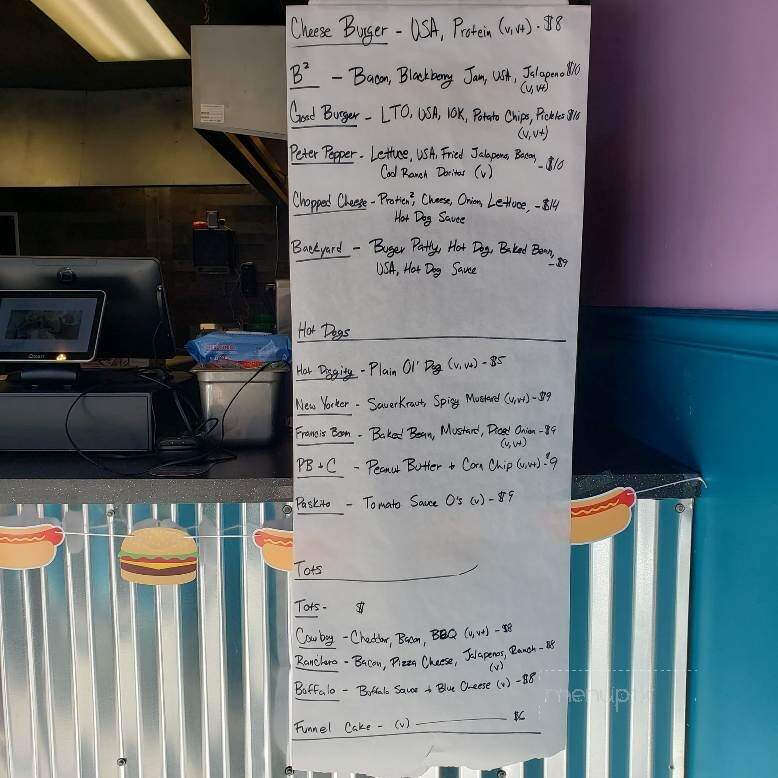 Cheese Burger - USA, Protein (v,v+) - $8
B² - Bacon, Blackberry Jam, USA, Jalapeno $10
(v,v+)
Good Burger - LTO, USA, 10K, Potato Chips, Pickles $10
(v,v+)
Peter Pepper - Lettuse, USA, Fried Jalapeno, Bacon,
Cool Ranch Doritos (v) - $10
Chopped Cheese - Protien², Cheese, Onion, Lettuce, - $14
Hot Dog Sauce
Backyard - Buger Patty, Hot Dog, Baked Bean,
USA, Hot Dog Sauce - $9
Hot Dogs
Hot Diggity - Plain Ol' Dog (v,v+) - $5
New Yorker - SauerKraut, Spicy Mustard (v,v+) - $9
Francis Bean - Baked Bean, Mustard, Diced Onion - $9
(v,v+)
PB + C - Peanut Butter + Corn Chip (v,v+) - $9
Paskito - Tomato Sauce O's (v) - $9
Tots
Tots - $
Cowboy - Cheddar, Bacon, BBQ (v,v+) - $8
Ranchero - Bacon, Pizza Cheese, Jalapenos, Ranch - $8
(v)
Buffalo - Buffalo Sauce + Blue Cheese (v) - $8
Funnel Cake - (v) $6